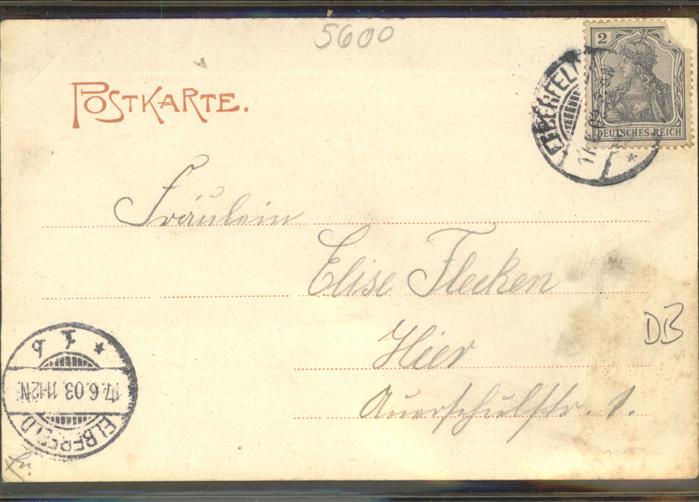 5600
POSTKARTE.
2
DEUTSCHES REICH
ELBERFELD
Fräulein
Elise Flecken
Hier
Auerschulstr. 1.
DB
17.6.03. 11-12N.
ELBERFELD